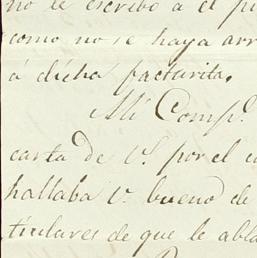 no le escribo a el pu
como no se haya arr
á dicha facturita.
Mi Comp.e
carta de V. por el co
hallaba V. bueno de
titulares de que le abla